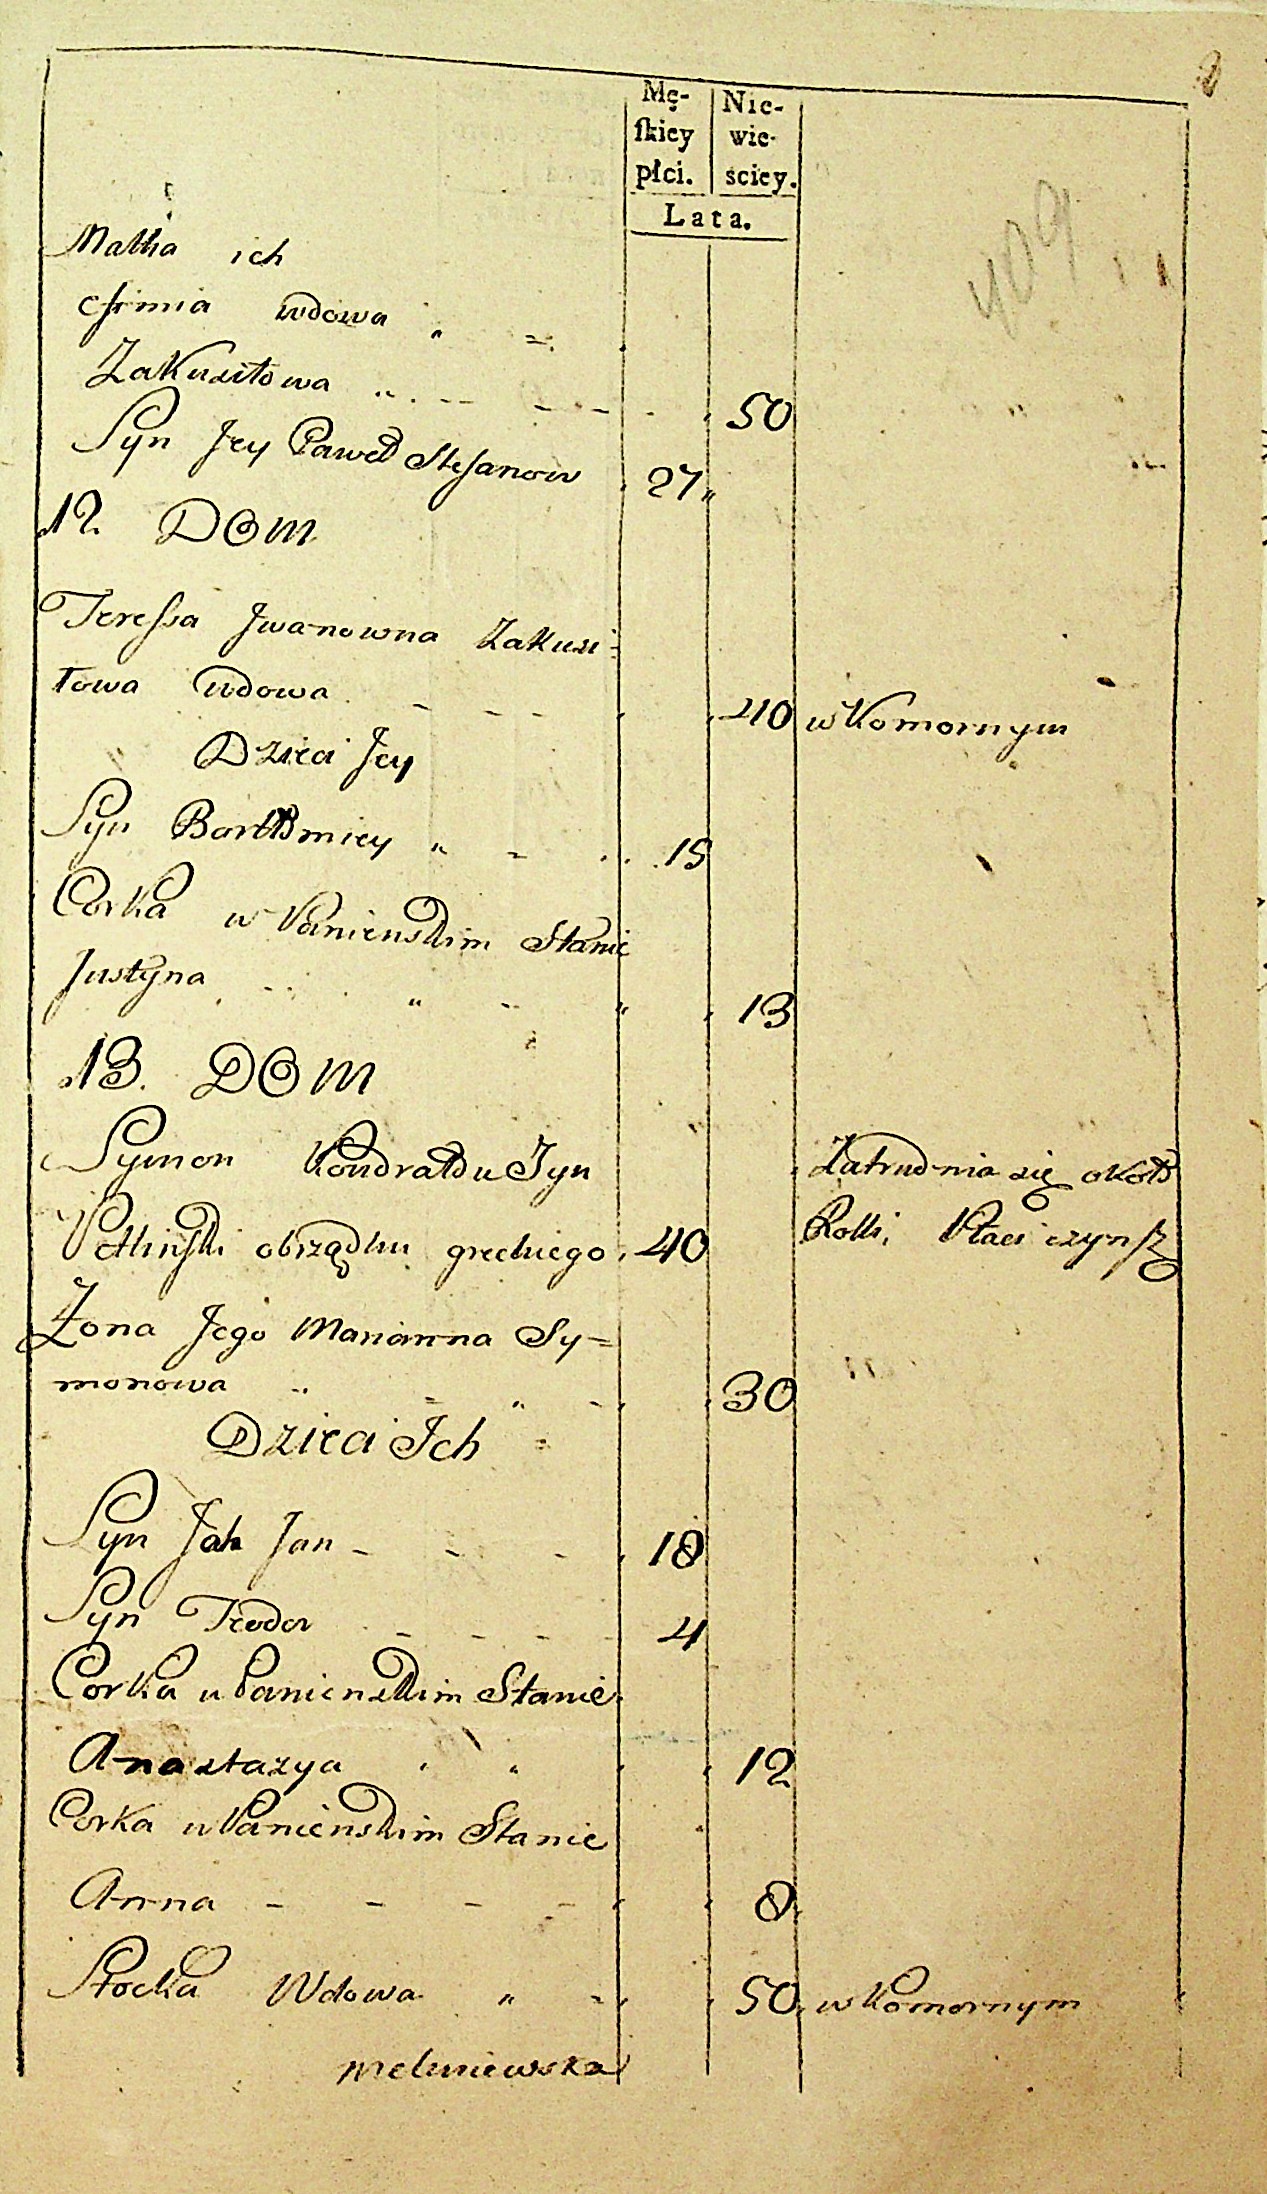 Mę-
skiey
płci.
Nie-
wie-
ściey.
Lata.
409
Matka ich
Efimia wdowa
Zakusiłowa 50
Syn Jey Paweł Stefanow 27
12. DOM
Teressa Jwanowna Zakusi=
łowa wdowa 40 w Komornym
Dzieci Jey
Syn Bartłomiey 15
Corka w Panienskim Stanie
Justyna 13
13. DOM
Symon Kondratdu Syn Zatrudnia się około
obrządku greckiego 40 Rolli, Płaci czynsz
Żona Jego Marianna Sy=
monowa 30
Dzieci Jch
Syn Jak Jan 18
Syn Teodor 4
Corka w Panienskim Stanie
Anastazya 12
Corka w Panienskim Stanie
Anna 8
Wdowa 50 w Komornym